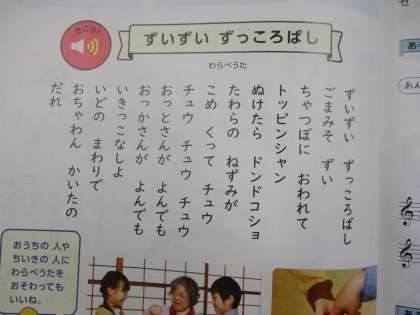 きこう!
ずいずい ずっころばし
わらべうた
ずいずい ずっころばし
ごまみそ ずい
ちゃつぼに おわれて
トッピンシャン
ぬけたら ドンドコショ
たわらの ねずみが
こめ くって チュウ
チュウ チュウ チュウ
おっとさんが よんでも
おっかさんが よんでも
いきっこなしよ
いどの まわりで
おちゃわん かいたの
だれ
おうちの 人や
ちいきの 人に
わらべうたを
おそわっても
いいね。